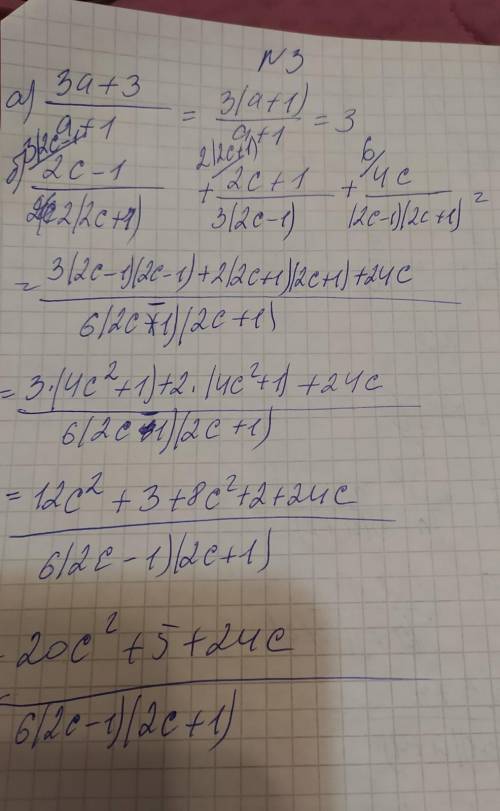 N3
а) (3a+3)/(a+1) = 3(a+1)/(a+1) = 3
б) 3(2c-1)/ (2c-1)/(2(2c+1)) + 2(2c+1)/ (2c+1)/(3(2c-1)) + 6/ 4c/((2c-1)(2c+1)) =
= (3(2c-1)(2c-1)+2(2c+1)(2c+1)+24c)/(6(2c-1)(2c+1))
= (3·(4c²+1)+2·(4c²+1)+24c)/(6(2c-1)(2c+1))
= (12c²+3+8c²+2+24c)/(6(2c-1)(2c+1))
= (20c²+5+24c)/(6(2c-1)(2c+1))